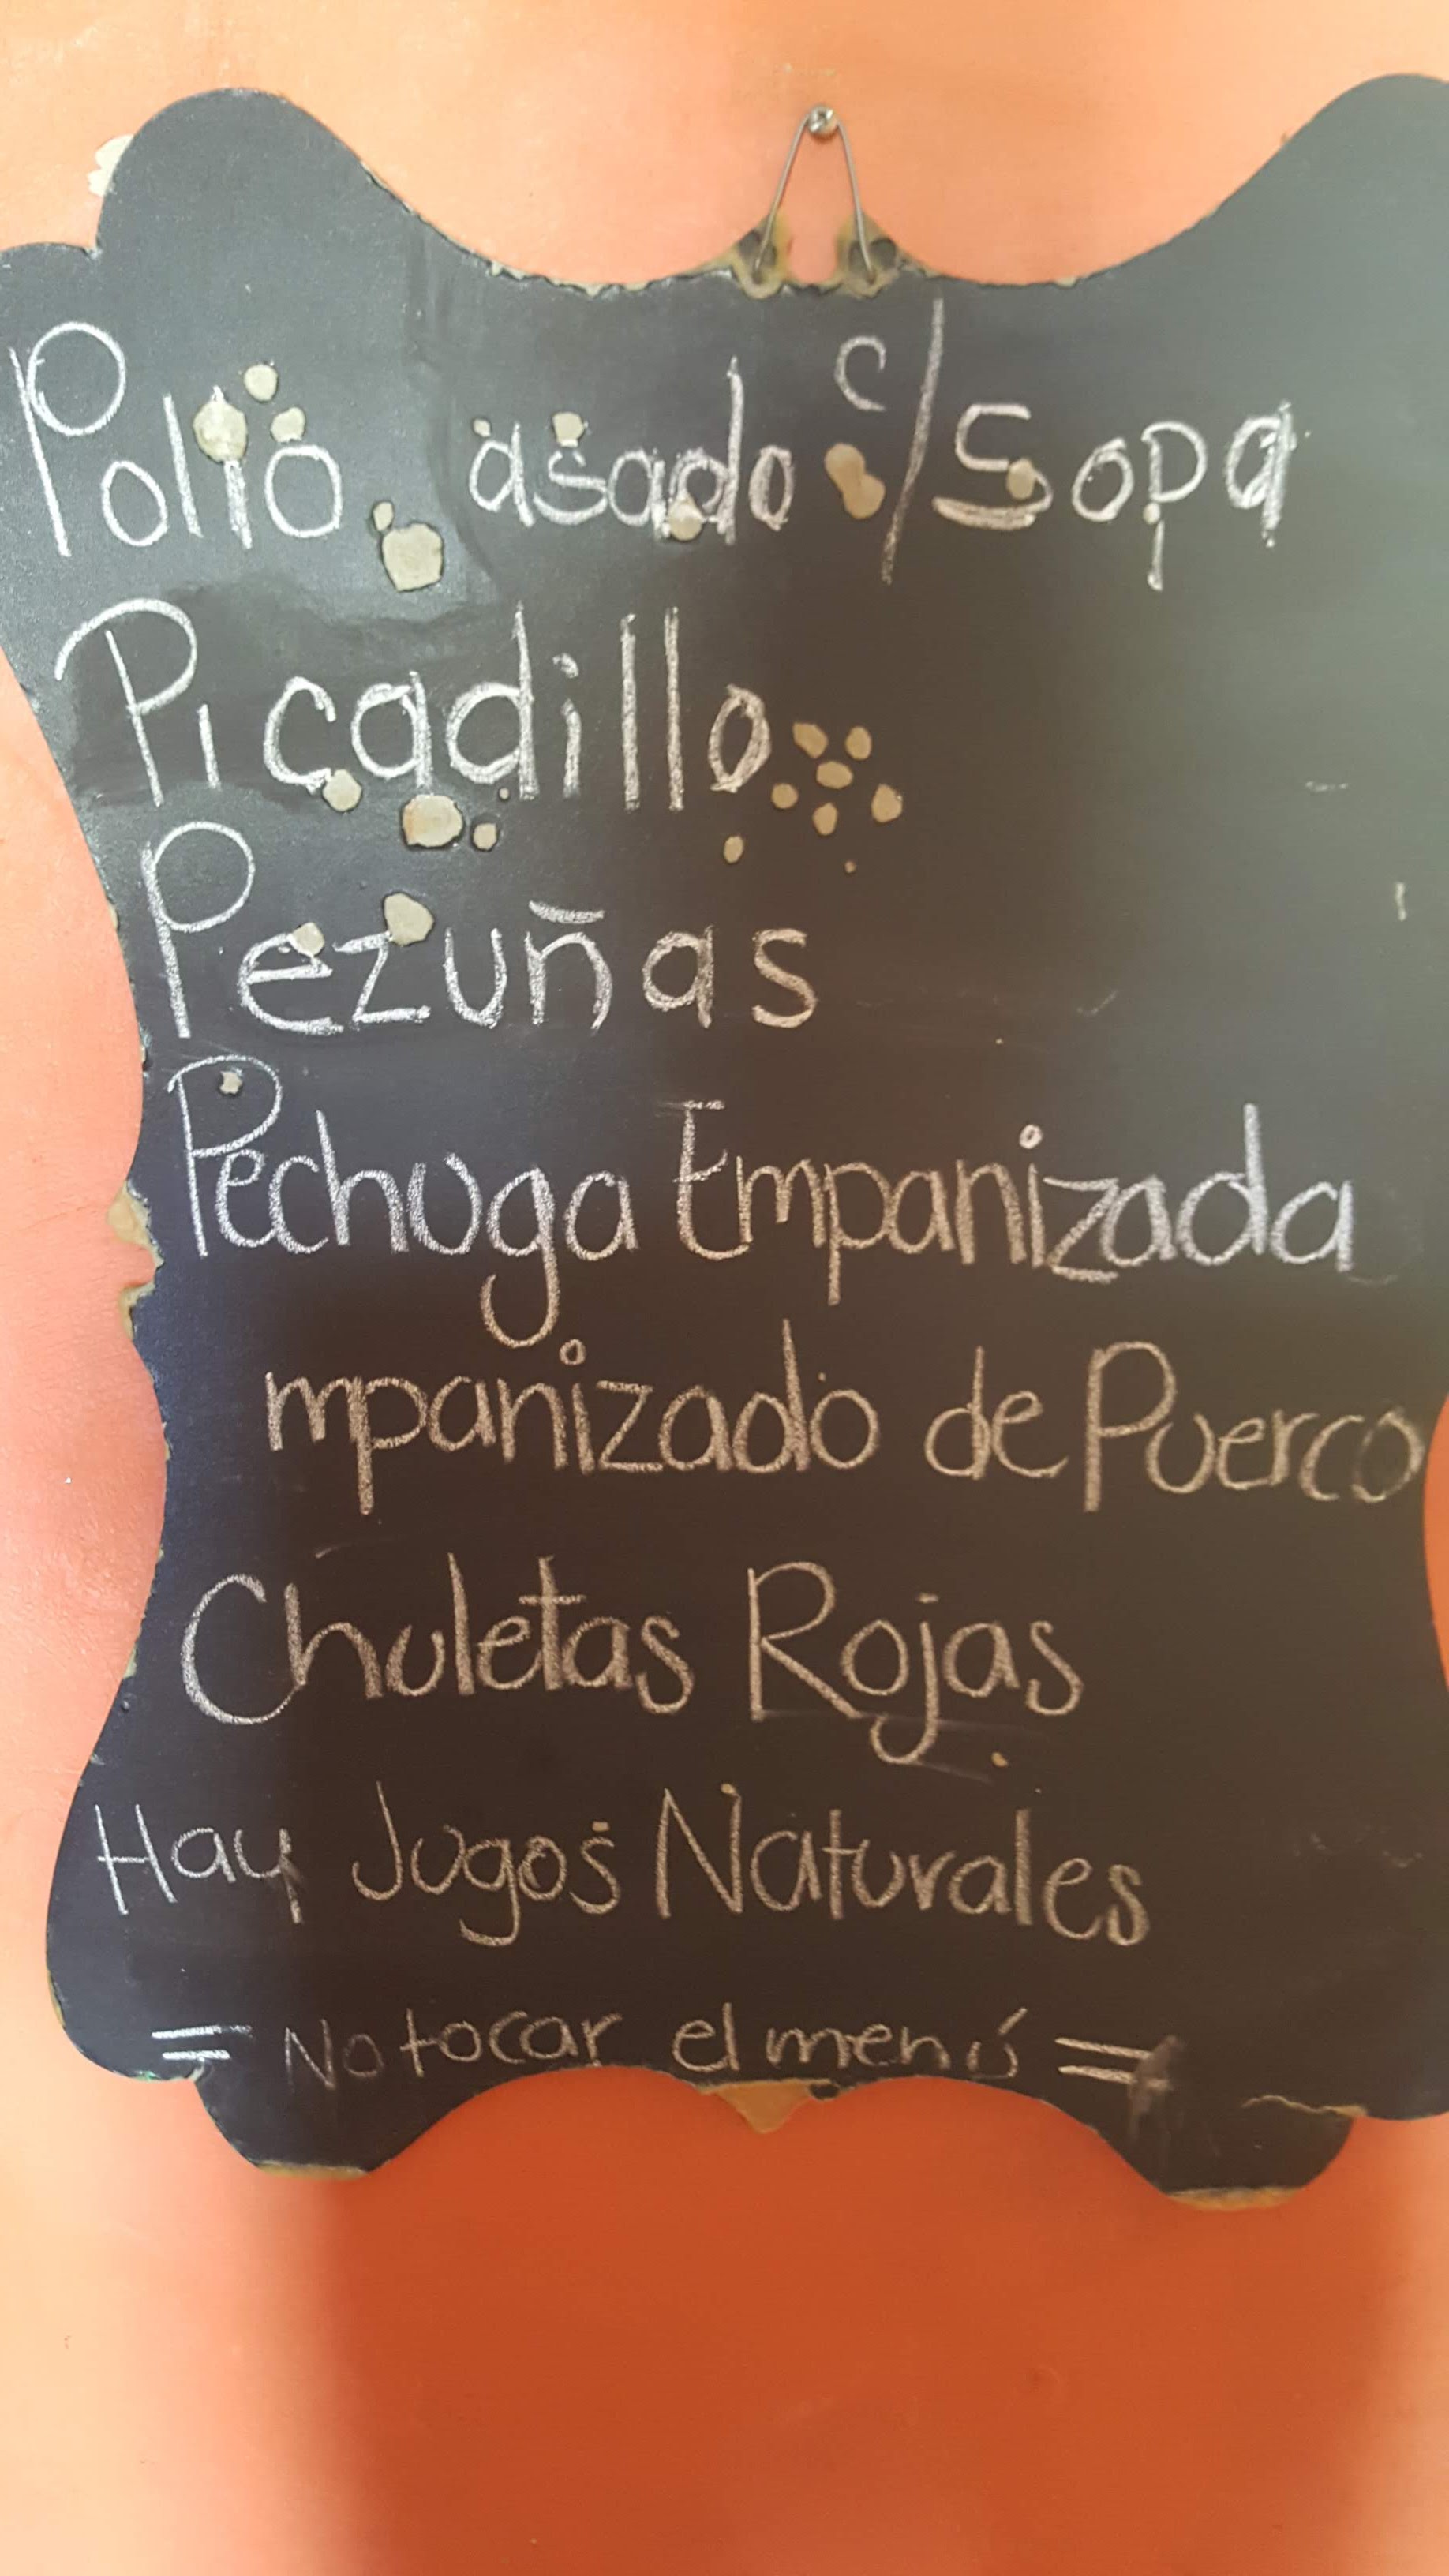 Pollo asado c/Sopa
Picadillo
Pezuñas
Pechuga Empanizada
mpanizado de Puerco
Chuletas Rojas
Hay Jugos Naturales
= No tocar el menú =